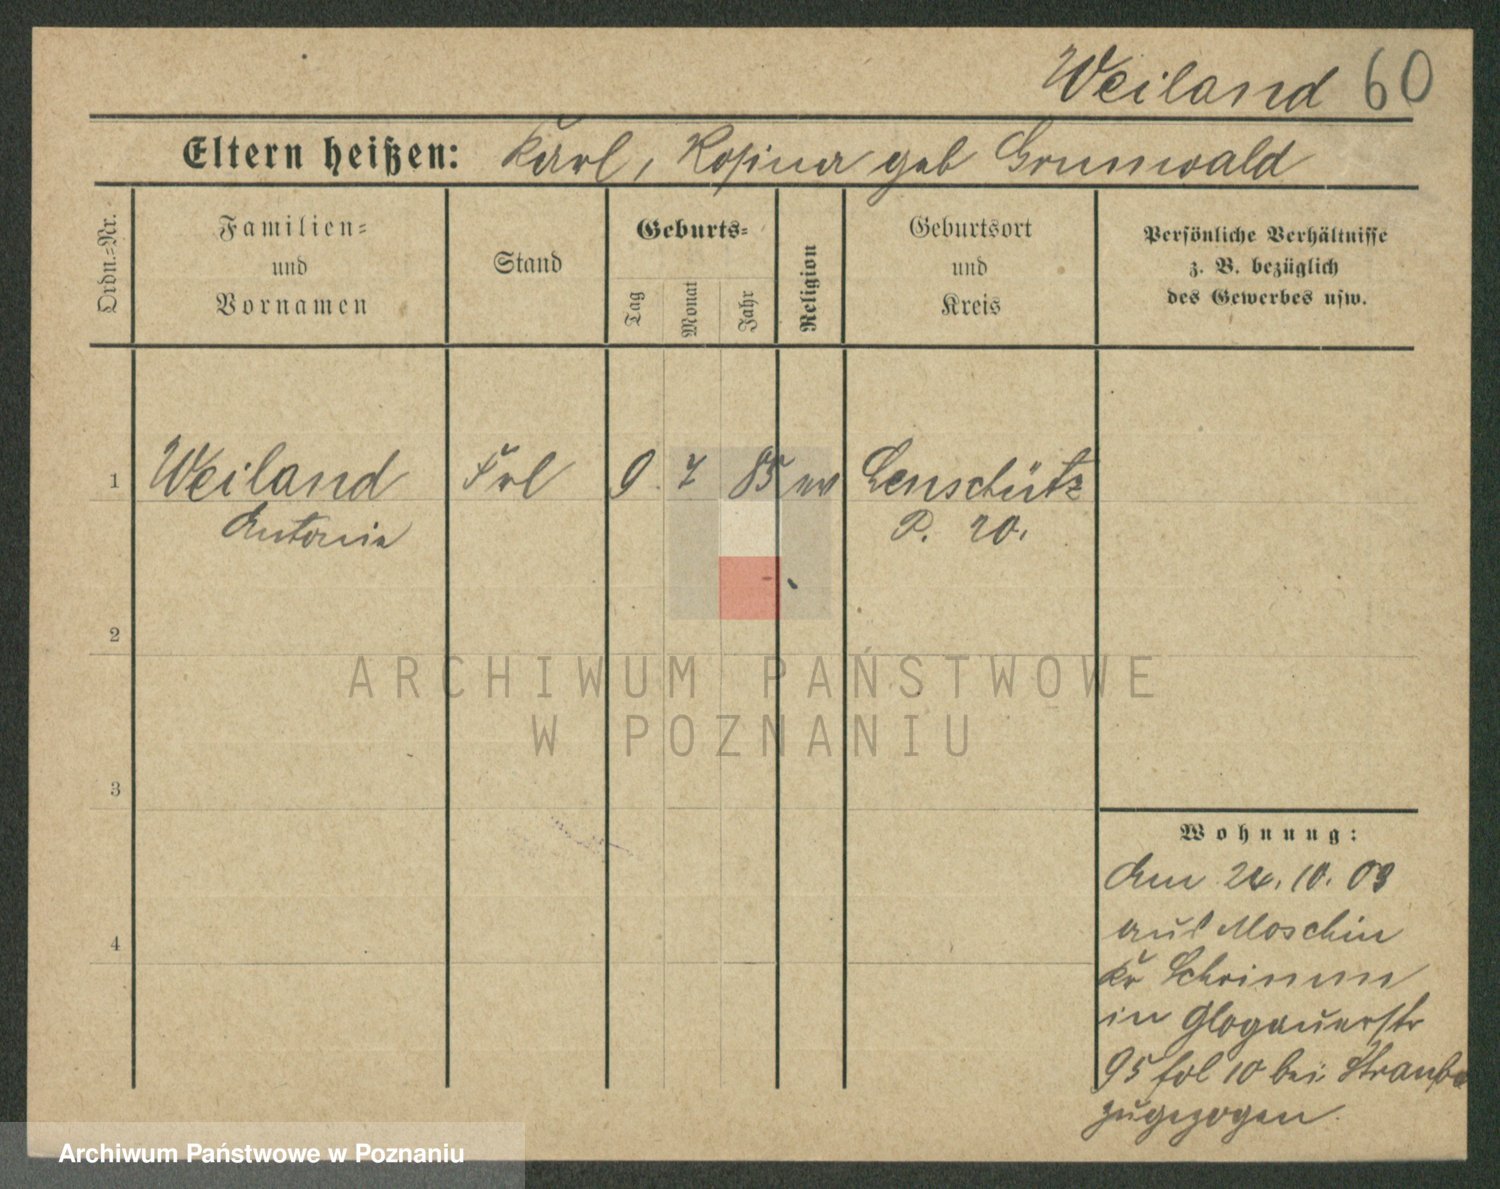 Weiland 60
Eltern heißen: Karl, Rosina geb Grunwald
Ordn.=Nr.
Familien=
und
Vornamen
Stand
Geburts=
Tag
Monat
Jahr
Religion
Geburtsort
und
Kreis
Persönliche Verhältnisse
z. B. bezüglich
des Gewerbes usw.
1 Weiland Frl 9. 7 85 ev Lenschütz
Antonie P. 20.
2
ARCHIWUM PAŃSTWOWE
W POZNANIU
3
Wohnung:
Am 24. 10. 03
aus Moschin
Kr Schrimm
in Glogauerstr
95 fol 10 bei
zugezogen.
4
Archiwum Państwowe w Poznaniu